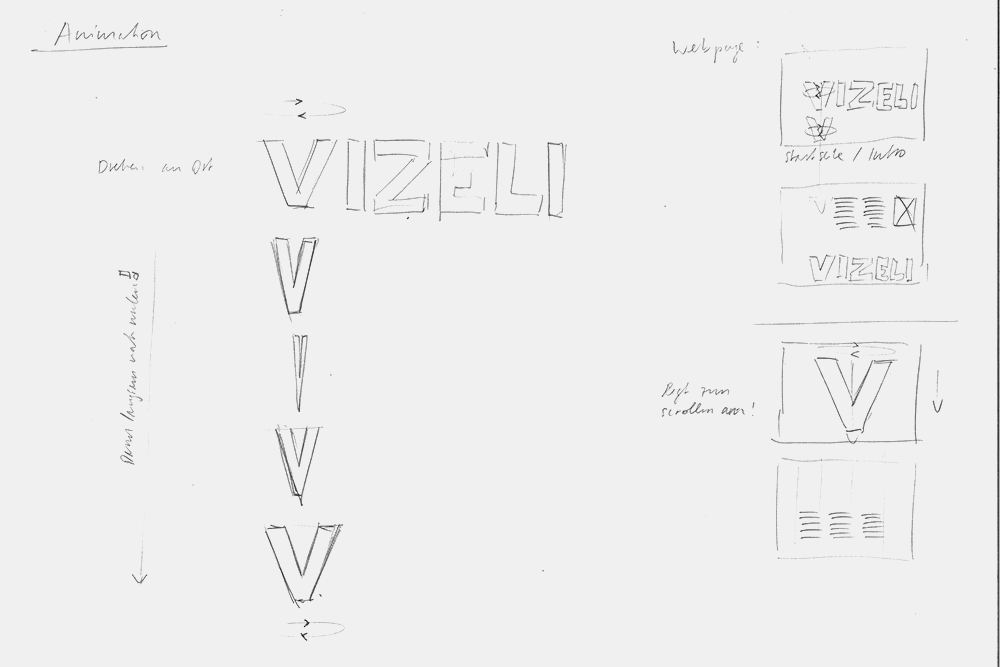 Animation
Drehen an Ort
VIZELI
V
V
V
V
Dann langsam nach unten
Webpage:
VIZELI
V
Startseite / Intro
V
VIZELI
V
Regt zum
scrollen an!